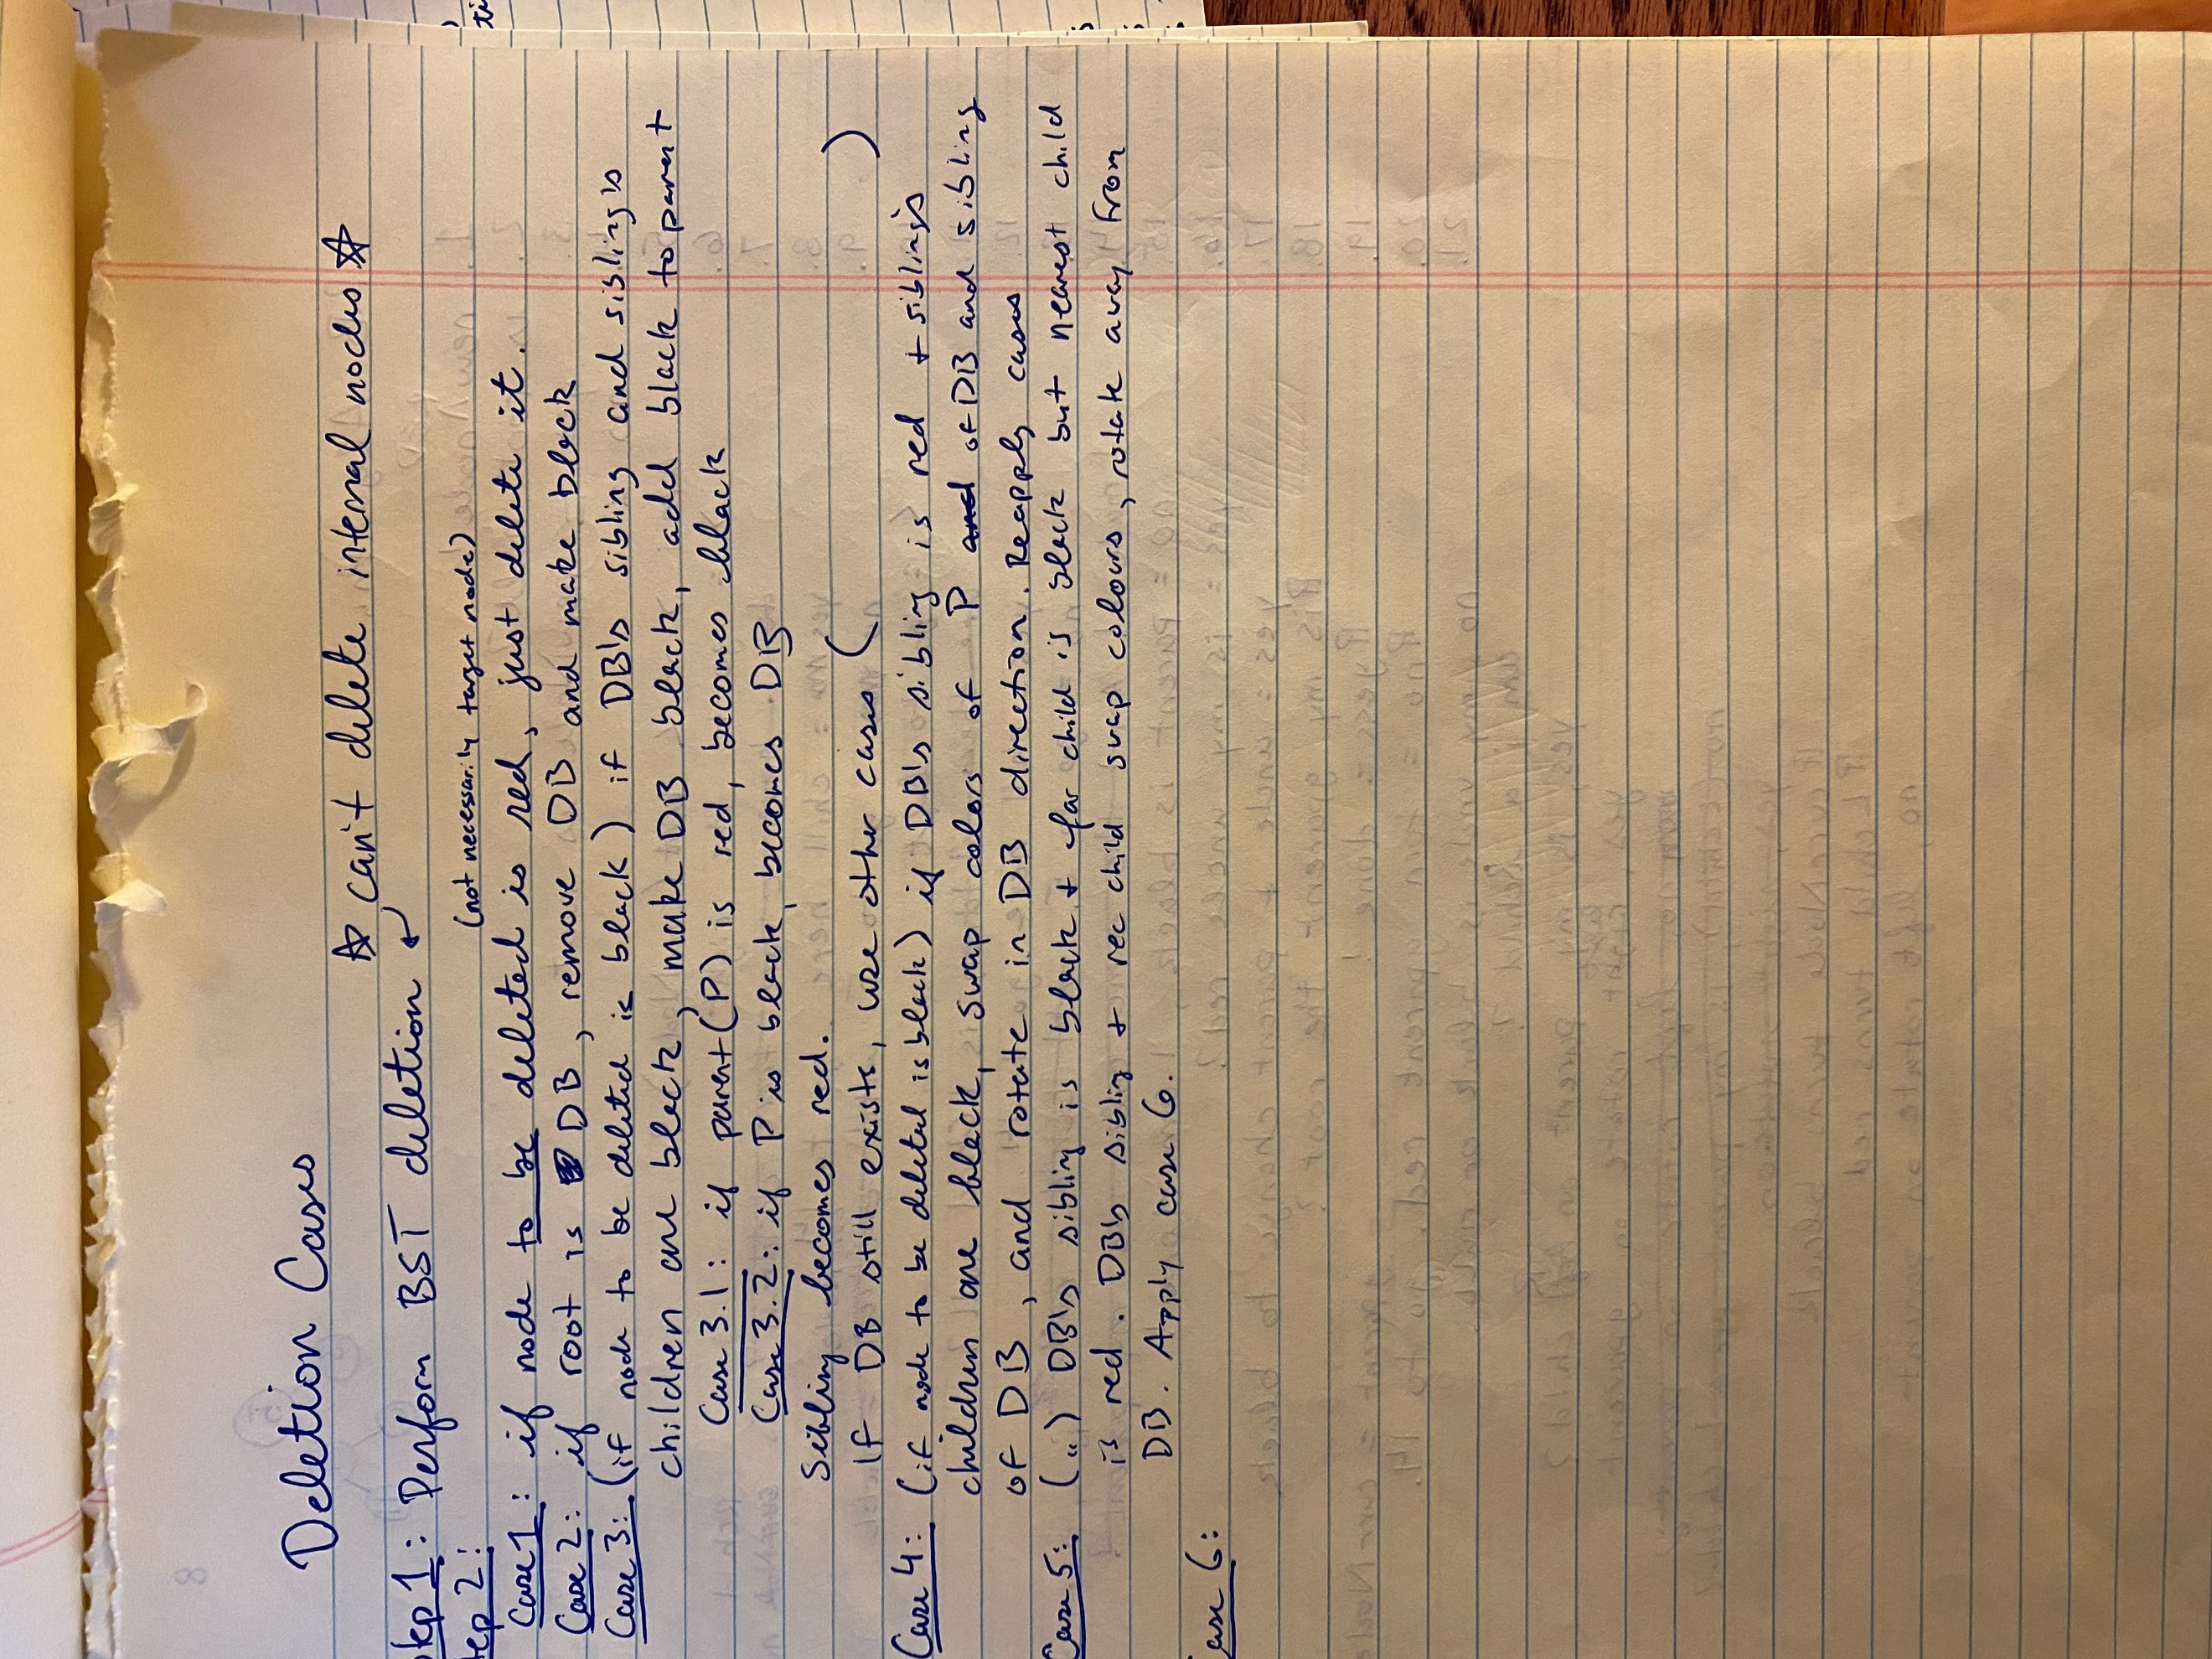 Deletion Cases
☆ can't delete internal nodes ☆
Step 1: Perform BST deletion ↙
Step 2:
(not necessarily target node)
Case 1: if node to be deleted is red, just delete it.
Case 2: if root is DB, remove DB and make black
Case 3: (if node to be deleted is black) if DB's sibling and sibling's
children are black, make DB black, add black to parent
Case 3.1: if parent (P) is red, becomes black
Case 3.2: if P is black, becomes DB
Sibling becomes red.
If DB still exists, use other cases ( )
Case 4: (if node to be deleted is black) if DB's sibling is red + sibling's
children are black, swap colors of P and of DB and sibling
of DB, and rotate in DB direction. Reapply cases
Case 5: (") DB's sibling is black + far child is black but nearest child
is red. DB's sibling + rec child swap colours, rotate away from
DB. Apply case 6.
Case 6: